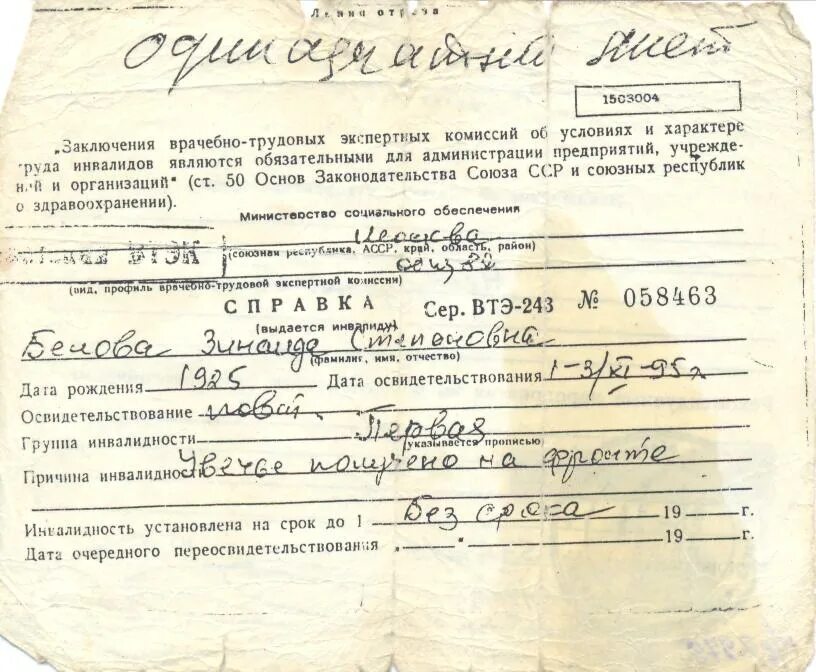 Линия отреза
одинадцатый
1503004
„Заключения врачебно-трудовых экспертных комиссий об условиях и характере
труда инвалидов являются обязательными для администрации предприятий, учрежде-
ний и организаций" (ст. 50 Основ Законодательства Союза ССР и союзных республик
о здравоохранении).
Министерство социального обеспечения
Москва
(союзная республика, АССР, край, область, район)
ВТЭК
(вид, профиль врачебно-трудовой экспертной комиссии)
СПРАВКА Сер. ВТЭ-243 № 058463
(выдается инвалиду)
Белова Зинаида Степановна
(фамилия, имя, отчество)
Дата рождения 1925 Дата освидетельствования 1-3/XI-95г
Освидетельствование повт.
Группа инвалидности Первая
(указывается прописью)
Причина инвалидности Увечье получено на фронте
Инвалидность установлена на срок до 1 Без срока 19 г.
Дата очередного переосвидетельствования „ " 19 г.